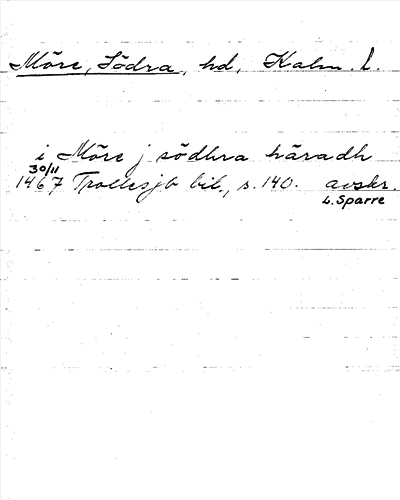 Möre, Södra, hd, Kalm. l.
i Möre j södhra häradh
30/11
1467 Trollesjb bil., s. 140. avskr.
L. Sparre